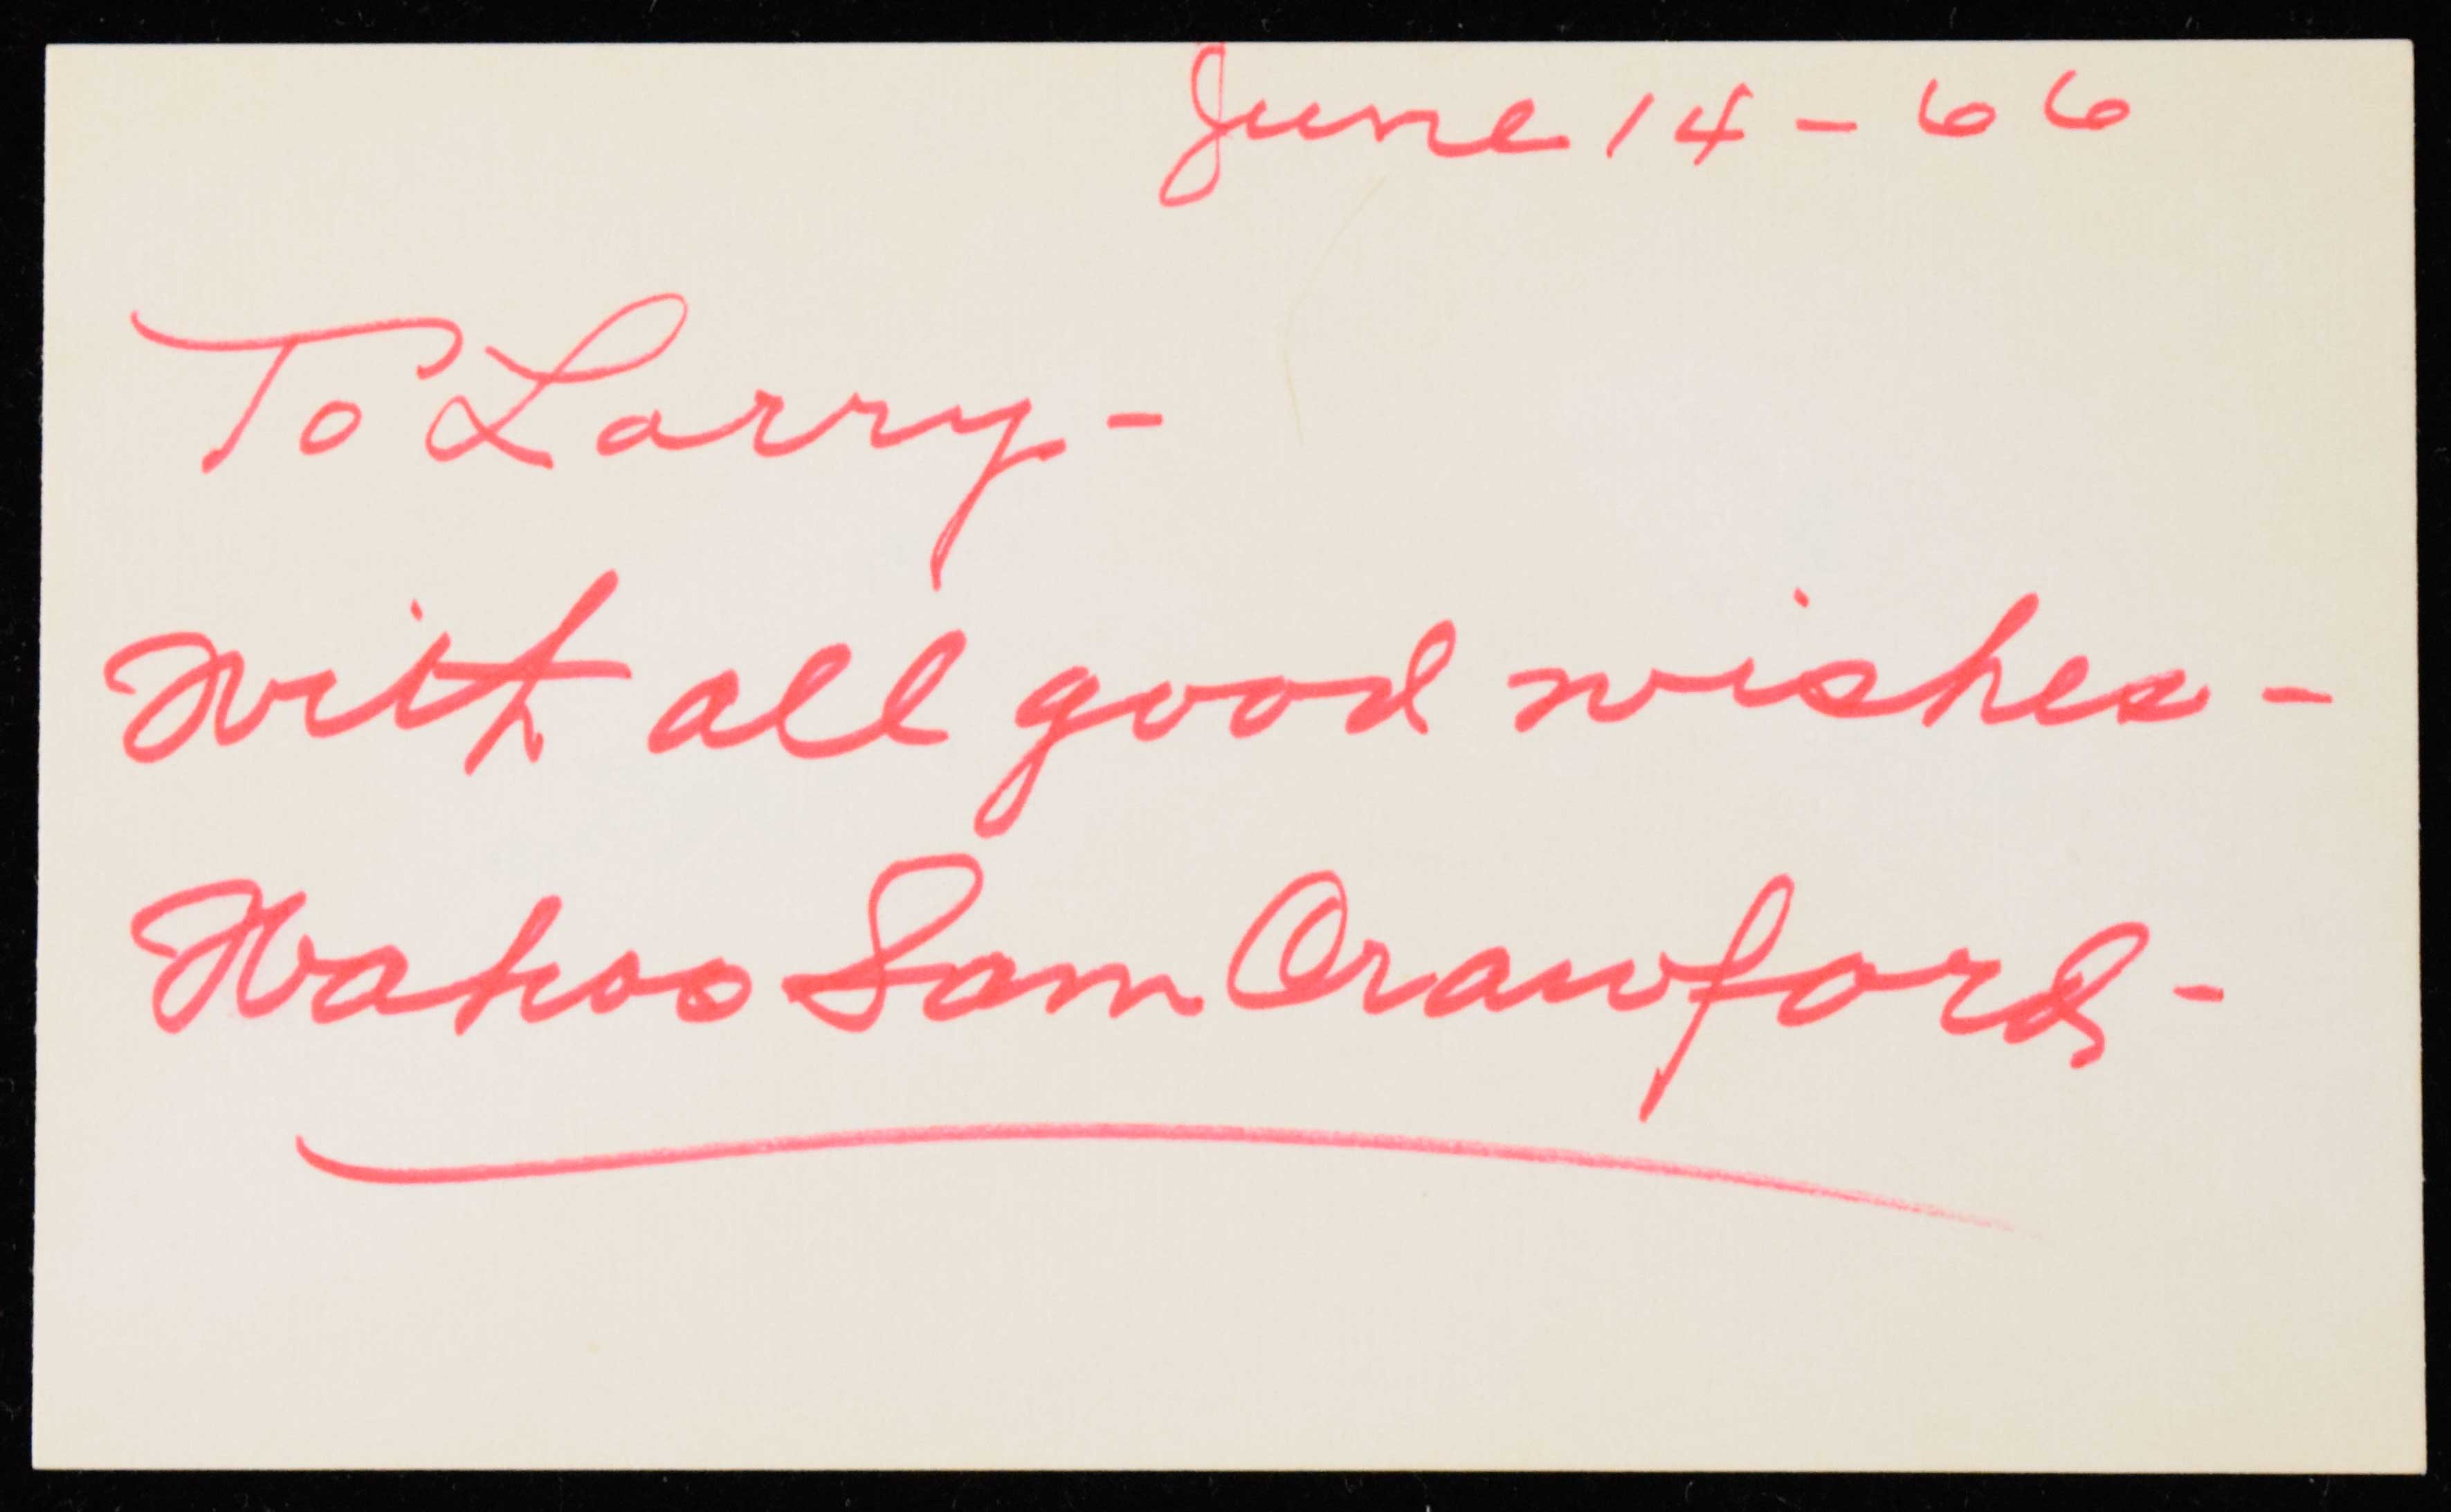 June 14 - 66
To Larry -
With all good wishes -
Wahoo Sam Crawford -